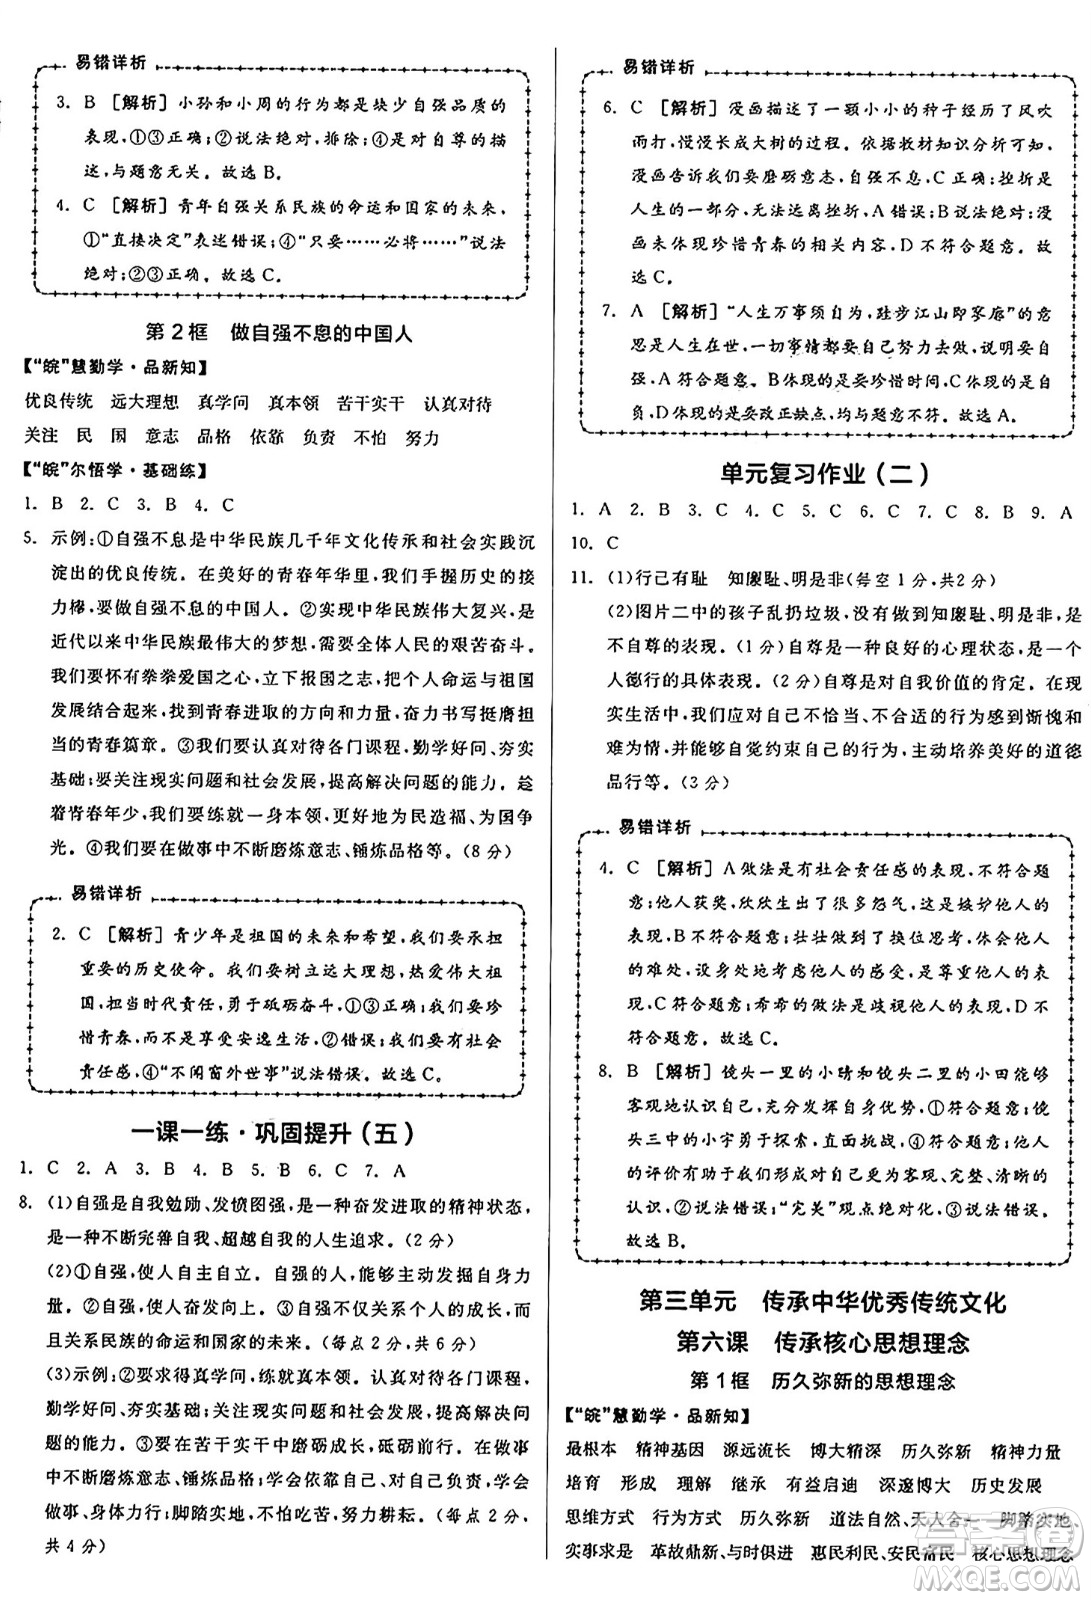 易错详析
3. B [解析] 小孙和小周的行为都是缺少自强品质的
表现,①③正确;②说法绝对,排除;④是对自尊的描
述,与题意无关。故选 B。
4. C [解析] 青年自强关系民族的命运和国家的未来,
①“直接决定”表述错误;④“只要……必将……”说法
绝对;②③正确。故选 C。
第 2 框 做自强不息的中国人
【“皖”慧勤学·品新知】
优良传统 远大理想 真学问 真本领 苦干实干 认真对待
关注 民 国 意志 品格 依靠 负责 不怕 努力
【“皖”尔悟学·基础练】
1. B 2. C 3. B 4. C
5. 示例:①自强不息是中华民族几千年文化传承和社会实践沉
淀出的优良传统。在美好的青春年华里,我们手握历史的接
力棒,要做自强不息的中国人。②实现中华民族伟大复兴,是
近代以来中华民族最伟大的梦想,需要全体人民的艰苦奋斗。
我们要怀有拳拳爱国之心,立下报国之志,把个人命运与祖国
发展结合起来,找到青春奋进的方向和力量,奋力书写挺膺担
当的青春篇章。③我们要认真对待各门课程,勤学好问、夯实
基础;要关注现实问题和社会发展,提高解决问题的能力。趁
着青春年少,我们要练就一身本领,将来为民造福、为国争
光。④我们要在做事中不断磨炼意志、锤炼品格等。(8 分)
易错详析
2. C [解析] 青少年是祖国的未来和希望,我们要承担
重要的历史使命。我们要树立远大理想,热爱伟大祖
国,担当时代责任,勇于砥砺奋斗,①③正确;我们要珍
惜青春,而不是享受安逸生活,②错误;我们要有社会
责任感,④“不闻窗外世事”说法错误。故选 C。
一课一练·巩固提升(五)
1. C 2. A 3. B 4. B 5. B 6. C 7. A
8. (1)自强是自我勉励、发愤图强,是一种奋发进取的精神状态,
是一种不断完善自我、超越自我的人生追求。(2 分)
(2)①自强,使人自主自立。自强的人,富有积极进取的精
神。②自强,使人奋发向上。③自强不仅关系个人的成长,也
关系民族的命运和国家的未来。(每点 2 分,共 6 分)
(3)示例:②要求得真学问、练就真本领。认真对待各门课程,
勤学好问、夯实基础;关注现实问题和社会发展,提高解决问
题的能力。③要在苦干实干中磨砺成长、砥砺前行。在做事
中不断磨炼意志、锤炼品格;学会依靠自己、对自己负责,学会
做事、身体力行;脚踏实地、不怕吃苦,努力耕耘。(每点 2 分,
共 4 分)
易错详析
6. C [解析] 漫画描述了一颗小小的种子经历了风吹
雨打,慢慢长成大树的过程。依据教材知识分析可知,
漫画告诉我们要磨砺意志,自强不息,C 正确;挫折是
人生的一部分,无法选择挫折,A 错误;B 说法绝对;本
漫画未体现珍惜青春的相关内容,D 不符合题意。故
选 C。
7. A [解析] “人生万事须自为,跬步江山即寥廓”的意
思是人生在世,一切事情都要自己努力去做,说明要自
强,A 符合题意。B 体现的是要珍惜时间,C 体现的是自
负,D 体现的是要改正缺点,均与题意不符。故选 A。
单元复习作业(二)
1. A 2. B 3. C 4. C 5. C 6. D 7. C 8. B 9. A
10. C
11. (1)行己有耻 知廉耻、明是非(每空 1 分,共 2 分)
(2)图片二中的孩子乱扔垃圾,没有做到知廉耻、明是非,是
不自尊的表现。(1 分)自尊是一种良好的心理状态,是一个
人德行的具体表现。(2 分)自尊是对自我价值的肯定。现
实生活中,我们应对自己不恰当、不合适的行为感到惭愧和
难为情,并能够自觉约束自己的行为,主动培养美好的道德
品行等。(3 分)
易错详析
4. C [解析] A 做法是有社会责任感的表现,不符合题
意;他人获奖,欣欣生出了很多怨气,这是嫉妒他人的
表现,B 不符合题意;壮壮做到了换位思考,体会他人
的难处,设身处地考虑他人的感受,是尊重他人的表
现,C 符合题意;希希的做法是歧视他人的表现,D 不
符合题意。故选 C。
8. B [解析] 镜头一里的小晴和镜头二里的小田能够
客观地认识自己,发挥自身优势,①④符合题意;镜
头三中的小宇勇于探索,直面挑战,④符合题意;他人
的评价有助于我们形成对自己更客观、完整、清晰的
认识,②说法错误;“完美”观点绝对化,③说法错误。
故选 B。
第三单元 传承中华优秀传统文化
第六课 传承核心思想理念
第 1 框 历久弥新的思想理念
【“皖”慧勤学·品新知】
最根本 精神基因 源远流长 博大精深 历久弥新 精神力量
培育 形成 理解 继承 有益启迪 深邃博大 历史发展
思维方式 行为方式 历久弥新 道法自然、天人合一 脚踏实地、
实事求是 革故鼎新、与时俱进 惠民利民、安民富民 核心思想理念
答案圈
MXQE.COM